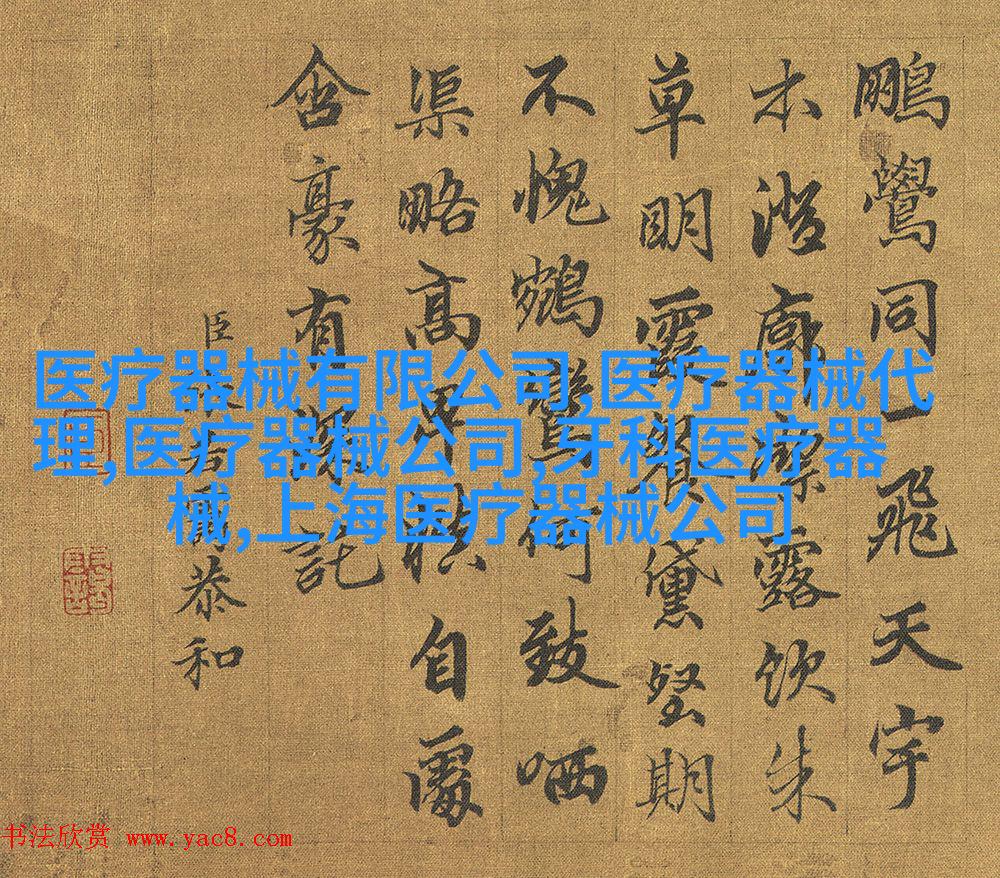 鵬鷽同一飛天宇
澄廓露飲朱
草明霞黛堅期
不愧鵷鸞何致哂
渠略高卑自
含豪有深託
臣恭和
医疗器械有限公司,医疗器械代
理,医疗器械公司,牙科医疗器
械,上海医疗器械公司
书法欣赏 www.yac8.com